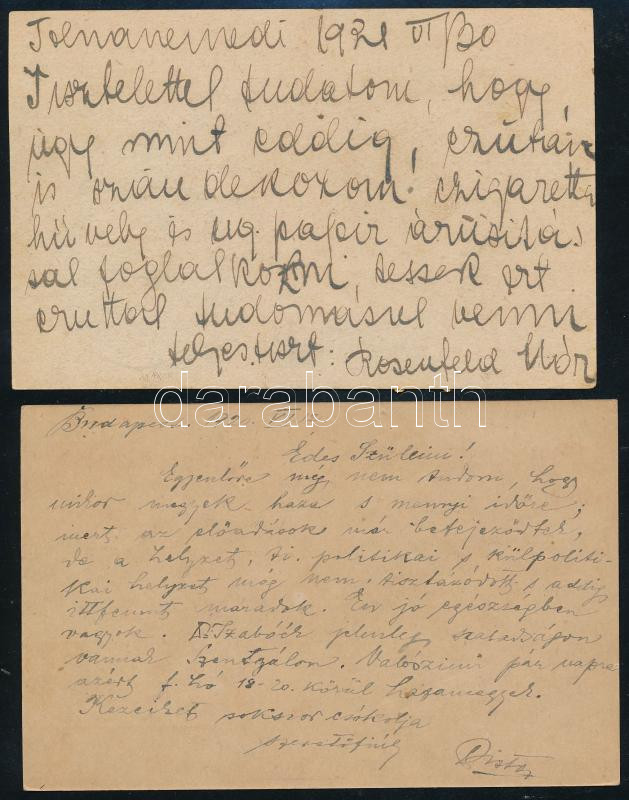 1921 VI/30
Tisztelettel tudatom, hogy
úgy mint eddig, ezután
is szándékozom! czigaretta
hüvely és papir árúsitás-
sal foglalkozni, tessék ezt
ezuttal tudomásul venni
Rosenfeld Mór
darabanth
Budapest
Édes Szüleim!
Egyenlőre még nem tudom, hogy
mikor megyek haza s mennyi időre;
mert az előadások már befejeződtek,
de a helyzet, t.i. politikai s külpoliti-
kai helyzet még nem tisztázódott s addig
ittfennt maradok. Én jó egészségben
vagyok. Szabóék jelenleg szabadságon
vannak Szentgálon. Valószinű pár napra
azért f. hó 18-20. körül hazamegyek.
Kezeiket sokszor csókolja
szerető fiúk